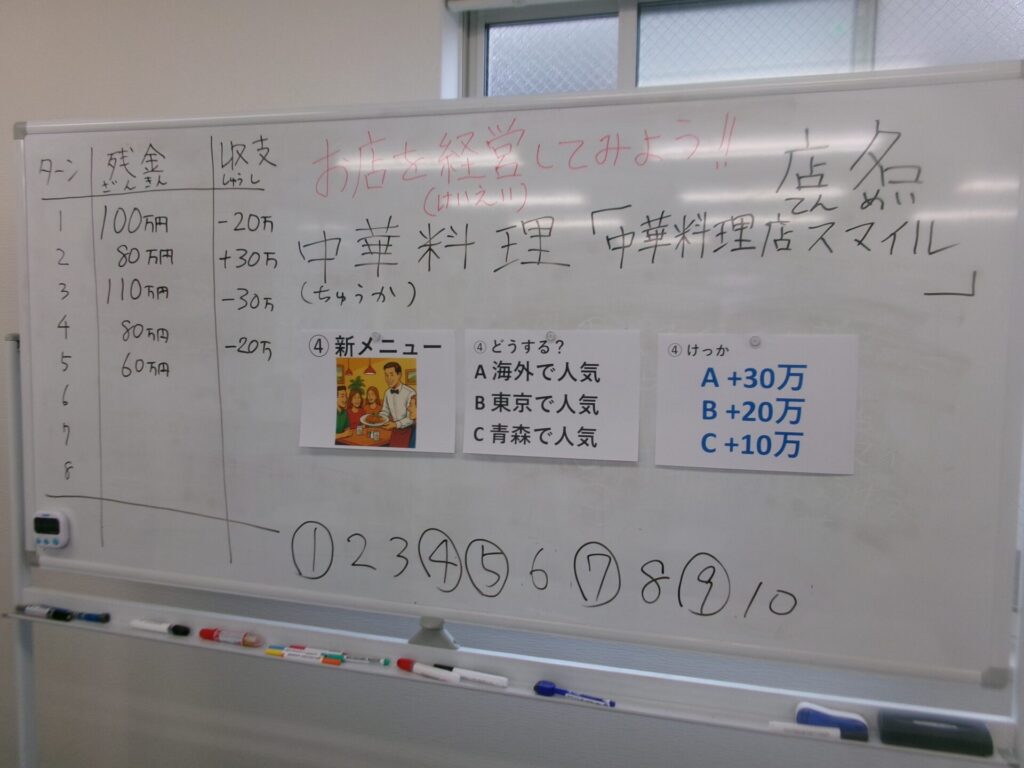 お店を経営してみよう!!
(けいえい)
店名
てんめい
中華料理「中華料理店スマイル」
(ちゅうか)
ターン 残金 収支
ざんきん しゅうし
1 100万円 -20万
2 80万円 +30万
3 110万円 -30万
4 80万円 -20万
5 60万円
6
7
8
④ 新メニュー
④ どうする?
A 海外で人気
B 東京で人気
C 青森で人気
④ けっか
A +30万
B +20万
C +10万
① 2 3 ④ ⑤ 6 ⑦ 8 ⑨ 10